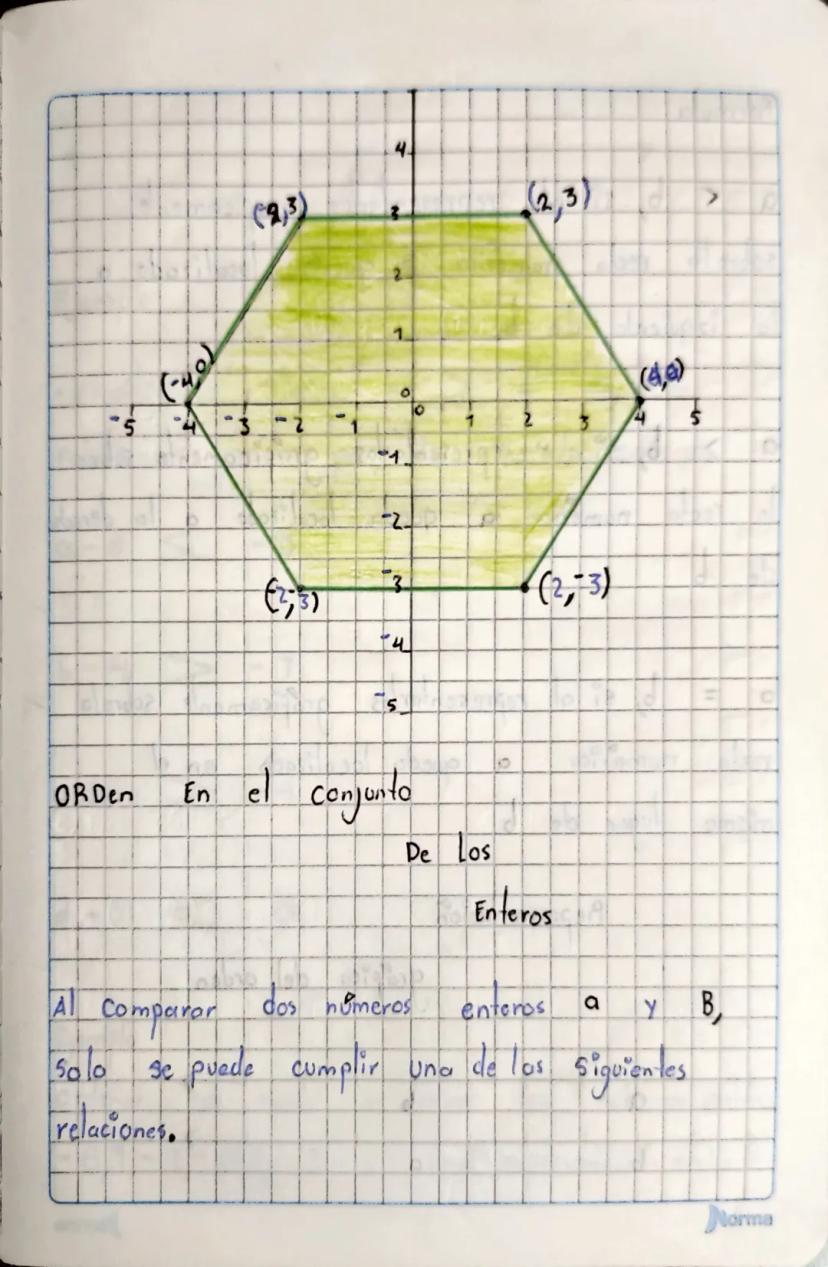 4
(-2,3) 3 (2,3)
2
1
(-4,0) 0 (4,0)
-5 -4 -3 -2 -1 0 1 2 3 4 5
-1
-2
-3
(-2,-3) (2,-3)
-4
-5
ORDen En el conjunto
De los
Enteros
Al comparar dos números enteros a y B,
solo se puede cumplir una de las siguientes
relaciones.
Norma